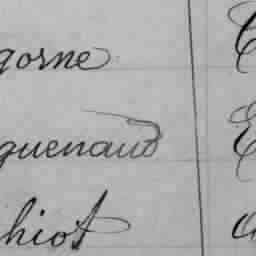 gorne
guenaud
hiot